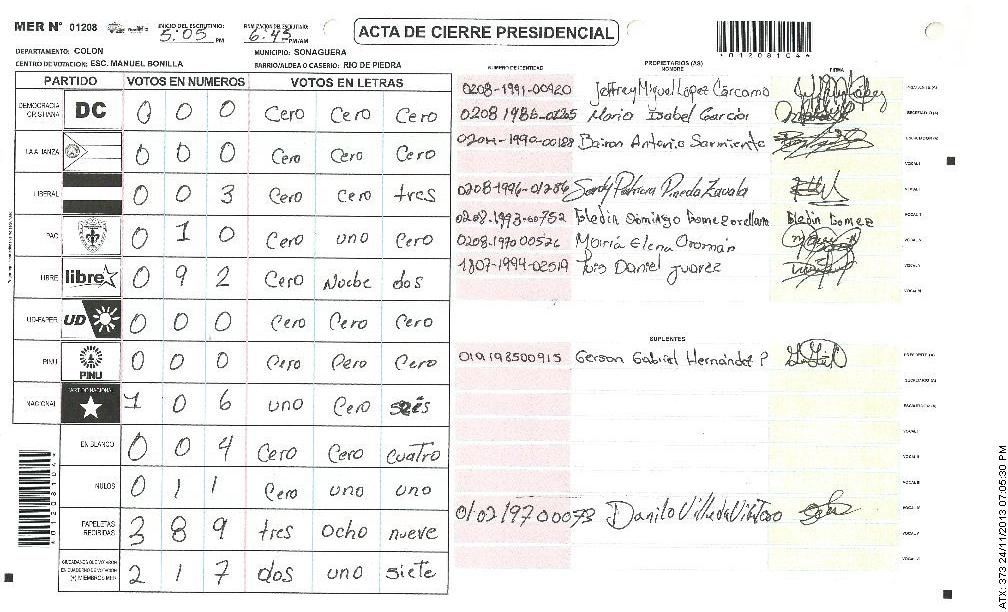 MER N° 01208
INICIO DEL ESCRUTINIO:
5:05 PM
FINALIZACION DEL ESCRUTINIO:
6:45 PM/AM
ACTA DE CIERRE PRESIDENCIAL
*01208104*
DEPARTAMENTO: COLON
MUNICIPIO: SONAGUERA
CENTRO DE VOTACION: ESC. MANUEL BONILLA
BARRIO/ALDEA O CASERIO: RIO DE PIEDRA
PARTIDO VOTOS EN NUMEROS VOTOS EN LETRAS
DEMOCRACIA CRISTIANA DC 0 0 0 Cero Cero Cero
LA ALIANZA 0 0 0 Cero Cero Cero
LIBERAL 0 0 3 Cero Cero tres
PAC 0 1 0 Cero uno Cero
LIBRE libre 0 9 2 Cero Nuebe dos
UD-FAPER UD 0 0 0 Cero Cero Cero
PINU PINU 0 0 0 Cero Cero Cero
NACIONAL PARTIDO NACIONAL 1 0 6 uno Cero seis
EN BLANCO 0 0 4 Cero Cero cuatro
NULOS 0 1 1 Cero uno uno
PAPELETAS RECIBIDAS 3 8 9 tres ocho nueve
CIUDADANOS QUE VOTARON EN CUADERNO DE VOTACION (+) MIEMBROS MER 2 1 7 dos uno siete
PROPIETARIOS (AS)
NUMERO DE IDENTIDAD NOMBRE FIRMA
0208-1991-00920 Jeffrey Miguel López Cárcamo
0208 1986-01265 Maria Isabel García SECRETARIO (A)
0204-1990-00188 Bairon Antonio Sarmiento ESCRUTADOR (A)
VOCAL I
0208-1996-01286 Sandy Patricia Pineda Zavala VOCAL II
0208-1993-00752 Eledin Domingo Gomez orellana Eledin Gomez
0208-1970 00526 María Elena Oromán
1807-1994-02519 Luis Daniel juarez
SUPLENTES
019198500915 Gerson Gabriel Hernández P PRESIDENTE (A)
SECRETARIO (A)
ESCRUTADOR (A)
VOCAL I
VOCAL II
VOCAL III
0102197000073 Danilo Villeda
*01208104*
ATX: 373 24/11/2013 07:05:30 PM